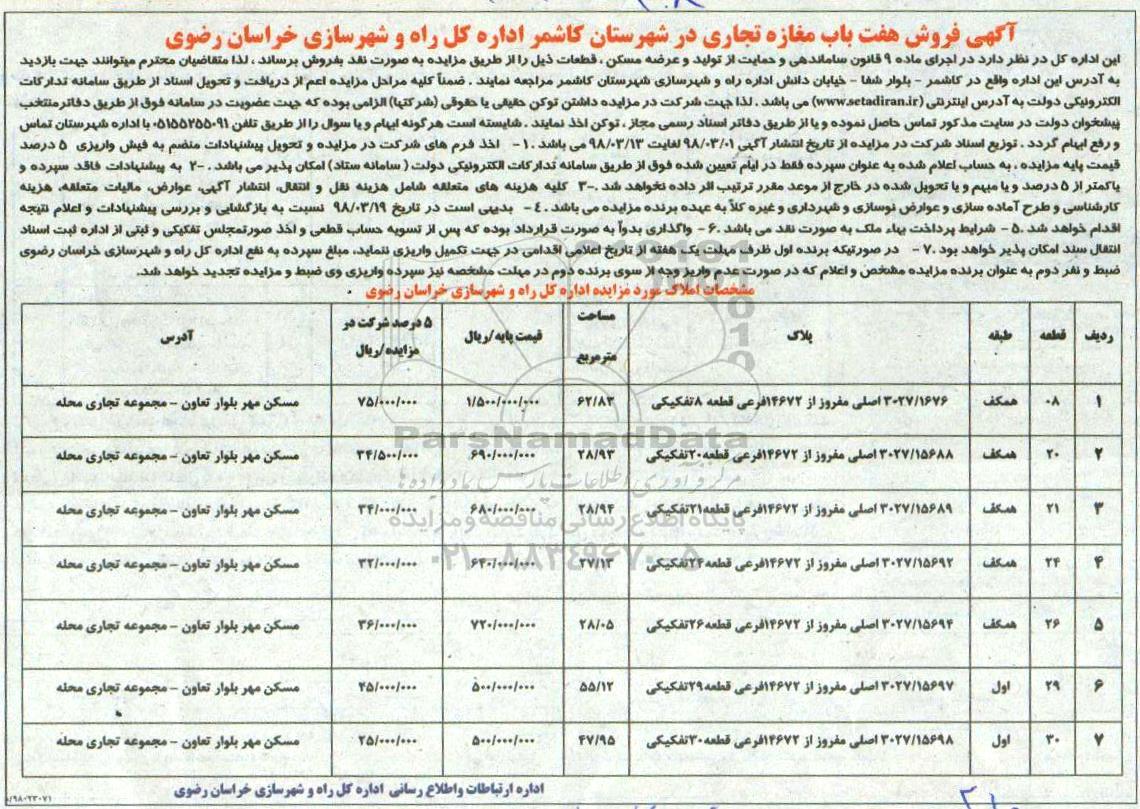 آگهی فروش هفت باب مغازه تجاری در شهرستان کاشمر اداره کل راه و شهرسازی خراسان رضوی
این اداره کل در نظر دارد در اجرای ماده ۹ قانون ساماندهی و حمایت از تولید و عرضه مسکن ، قطعات ذیل را از طریق مزایده به صورت نقد بفروش برساند ، لذا متقاضیان محترم میتوانند جهت بازدید
به آدرس این اداره واقع در کاشمر - بلوار شفا - خیابان دانش اداره راه و شهرسازی شهرستان کاشمر مراجعه نمایند . ضمناً کلیه مراحل مزایده اعم از دریافت و تحویل اسناد از طریق سامانه تدارکات
الکترونیکی دولت به آدرس اینترنتی (www.setadiran.ir) می باشد . لذا جهت شرکت در مزایده داشتن توکن حقیقی یا حقوقی (شرکتها) الزامی بوده که جهت عضویت در سامانه فوق از طریق دفاترمنتخب
پیشخوان دولت در سایت مذکور تماس حاصل نموده و یا از طریق دفاتر اسناد رسمی مجاز ، توکن اخذ نمایند . شایسته است هرگونه ابهام و یا سوال را از طریق تلفن ۰۵۱۵۵۲۵۵۰۹۱ با اداره شهرستان تماس
و رفع ابهام گردد . توزیع اسناد شرکت در مزایده از تاریخ انتشار آگهی ۹۸/۰۳/۰۱ لغایت ۹۸/۰۳/۱۳ می باشد . ۱- اخذ فرم های شرکت در مزایده و تحویل پیشنهادات منضم به فیش واریزی ۵ درصد
قیمت پایه مزایده ، به حساب اعلام شده به عنوان سپرده فقط در ایام تعیین شده فوق از طریق سامانه تدارکات الکترونیکی دولت ( سامانه ستاد) امکان پذیر می باشد . ۲- به پیشنهادات فاقد سپرده و
یاکمتر از ۵ درصد و یا مبهم و یا تحویل شده در خارج از موعد مقرر ترتیب اثر داده نخواهد شد .۳- کلیه هزینه های متعلقه شامل هزینه نقل و انتقال، انتشار آگهی، عوارض، مالیات متعلقه، هزینه
کارشناسی و طرح آماده سازی و عوارض نوسازی و شهرداری و غیره کلاً به عهده برنده مزایده می باشد . ٤- بدیهی است در تاریخ ۹۸/۰۳/۱۹ نسبت به بازگشایی و بررسی پیشنهادات و اعلام نتیجه
اقدام خواهد شد .۵- شرایط پرداخت بهاء ملک به صورت نقد می باشد .۶- واگذاری بدواً به صورت قرارداد بوده که پس از تسویه حساب قطعی و اخذ صورتمجلس تفکیکی و ثبتی از اداره ثبت اسناد
انتقال سند امکان پذیر خواهد بود .۷- در صورتیکه برنده اول ظرف مهلت یک هفته از تاریخ اعلامی اقدامی در جهت تکمیل واریزی ننماید، مبلغ سپرده به نفع اداره کل راه و شهرسازی خراسان رضوی
ضبط و نفر دوم به عنوان برنده مزایده مشخص و اعلام که در صورت عدم واریز وجه از سوی برنده دوم در مهلت مشخصه نیز سپرده واریزی وی ضبط و مزایده تجدید خواهد شد.
مشخصات املاک مورد مزایده اداره کل راه و شهرسازی خراسان رضوی
ردیف قطعه طبقه پلاک مساحت مترمربع قیمت پایه/ریال ۵ درصد شرکت در مزایده/ریال آدرس
۱ ۰۸ همکف ۳۰۲۷/۱۶۷۶ اصلی مفروز از ۱۴۶۷۲فرعی قطعه ۸تفکیکی ۶۲/۸۳ ۱/۵۰۰/۰۰۰/۰۰۰ ۷۵/۰۰۰/۰۰۰ مسکن مهر بلوار تعاون - مجموعه تجاری محله
۲ ۲۰ همکف ۳۰۲۷/۱۵۶۸۸ اصلی مفروز از ۱۴۶۷۲فرعی قطعه۲۰تفکیکی ۲۸/۹۳ ۶۹۰/۰۰۰/۰۰۰ ۳۴/۵۰۰/۰۰۰ مسکن مهر بلوار تعاون - مجموعه تجاری محله
۳ ۲۱ همکف ۳۰۲۷/۱۵۶۸۹ اصلی مفروز از ۱۴۶۷۲فرعی قطعه۲۱تفکیکی ۲۸/۹۴ ۶۸۰/۰۰۰/۰۰۰ ۳۴/۰۰۰/۰۰۰ مسکن مهر بلوار تعاون - مجموعه تجاری محله
۴ ۲۴ همکف ۳۰۲۷/۱۵۶۹۲ اصلی مفروز از ۱۴۶۷۲فرعی قطعه۲۴تفکیکی ۲۷/۱۳ ۶۴۰/۰۰۰/۰۰۰ ۳۲/۰۰۰/۰۰۰ مسکن مهر بلوار تعاون - مجموعه تجاری محله
۵ ۲۶ همکف ۳۰۲۷/۱۵۶۹۴ اصلی مفروز از ۱۴۶۷۲فرعی قطعه۲۶تفکیکی ۲۸/۰۵ ۷۲۰/۰۰۰/۰۰۰ ۳۶/۰۰۰/۰۰۰ مسکن مهر بلوار تعاون - مجموعه تجاری محله
۶ ۲۹ اول ۳۰۲۷/۱۵۶۹۷ اصلی مفروز از ۱۴۶۷۲فرعی قطعه۲۹تفکیکی ۵۵/۱۲ ۵۰۰/۰۰۰/۰۰۰ ۴۵/۰۰۰/۰۰۰ مسکن مهر بلوار تعاون - مجموعه تجاری محله
۷ ۳۰ اول ۳۰۲۷/۱۵۶۹۸ اصلی مفروز از ۱۴۶۷۲فرعی قطعه۳۰تفکیکی ۴۷/۹۵ ۵۰۰/۰۰۰/۰۰۰ ۲۵/۰۰۰/۰۰۰ مسکن مهر بلوار تعاون - مجموعه تجاری محله
ParsNamadData
مرکز فرآوری اطلاعات پارس نماد داده ها
پایگاه اطلاع رسانی مناقصه و مزایده
۰۲۱-۸۸۳۴۹۶۷۰-۵
اداره ارتباطات واطلاع رسانی اداره کل راه و شهرسازی خراسان رضوی